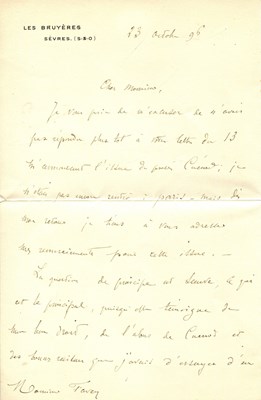 LES BRUYÈRES
SÈVRES. (S-&-O)
23 octobre 96
Cher Monsieur,
Je vous prie de m'excuser de n'avoir
pas répondu plus tôt à votre lettre du 13
m'annonçant l'issue du procès Cuénod, je
n'étais pas encore rentré à Paris, mais dès
mon retour je tiens à vous adresser
mes remerciements pour cette issue. —
La question de principe est sauve, ce qui
est le principal, puisqu'elle témoigne de
mon bon droit, de l'abus de Cuenod et
des bonnes raisons que j'avais d'essayer d'en
Monsieur Favey